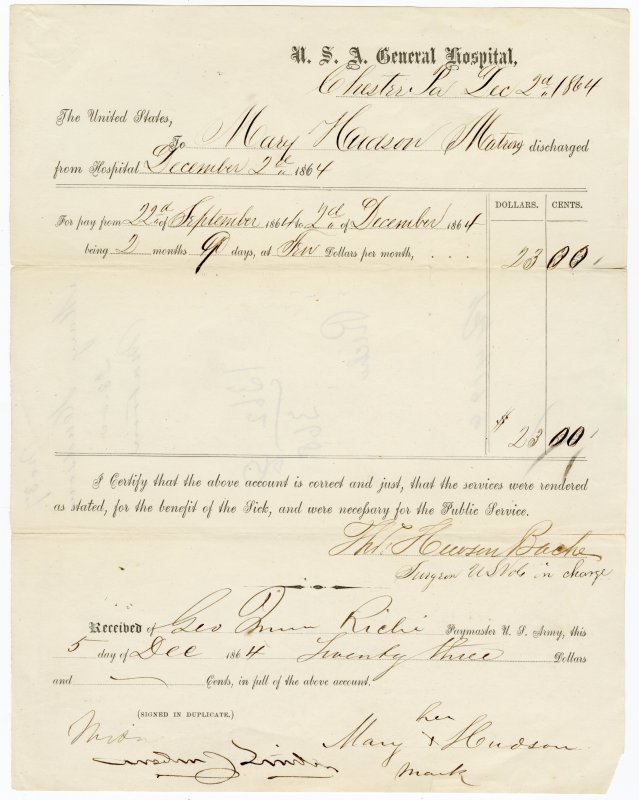 U. S. A. General Hospital,
Chester Pa Dec 2d, 1864
The United States,
To Mary Hudson Matron discharged
from Hospital December 2d 1864
DOLLARS. CENTS.
For pay from 22d of September 1864 to 2d of December 1864
being 2 months 9 days, at Ten Dollars per month, . . . .
23 00
$ 23 00
I Certify that the above account is correct and just, that the services were rendered
as stated, for the benefit of the Sick, and were necessary for the Public Service.
Thos. Hewson Bache
Surgeon U S Vols in charge
Received of Geo Richi Paymaster U. S. Army, this
5 day of Dec 1864 Twenty three Dollars
and Cents, in full of the above account.
(SIGNED IN DUPLICATE.)
her
Mary x Hudson
mark